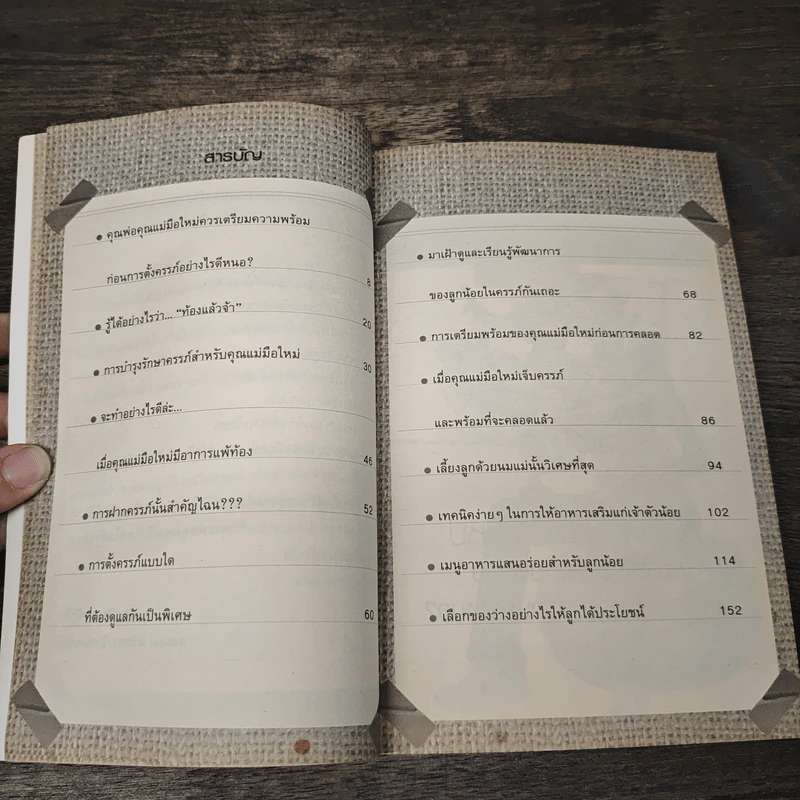 สารบัญ
● คุณพ่อคุณแม่มือใหม่ควรเตรียมความพร้อม
ก่อนการตั้งครรภ์อย่างไรดีหนอ? 8
● รู้ได้อย่างไรว่า... “ท้องแล้วจ้า” 20
● การบำรุงรักษาครรภ์สำหรับคุณแม่มือใหม่ 30
● จะทำอย่างไรดีล่ะ...
เมื่อคุณแม่มือใหม่มีอาการแพ้ท้อง 46
● การฝากครรภ์นั้นสำคัญไฉน??? 52
● การตั้งครรภ์แบบใด
ที่ต้องดูแลกันเป็นพิเศษ 60
● มาเฝ้าดูและเรียนรู้พัฒนาการ
ของลูกน้อยในครรภ์กันเถอะ 68
● การเตรียมพร้อมของคุณแม่มือใหม่ก่อนการคลอด 82
● เมื่อคุณแม่มือใหม่เจ็บครรภ์
และพร้อมที่จะคลอดแล้ว 86
● เลี้ยงลูกด้วยนมแม่นั้นวิเศษที่สุด 94
● เทคนิคง่ายๆ ในการให้อาหารเสริมแก่เจ้าตัวน้อย 102
● เมนูอาหารแสนอร่อยสำหรับลูกน้อย 114
● เลือกของว่างอย่างไรให้ลูกได้ประโยชน์ 152